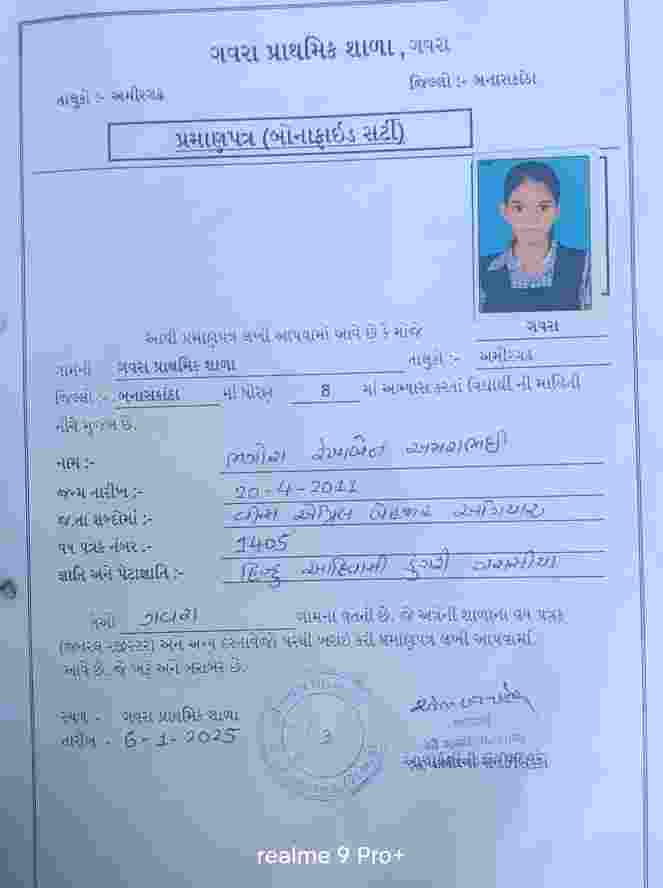 ગવરા પ્રાથમિક શાળા , ગવરા
તાલુકો :- અમીરગઢ જિલ્લો :- બનાસકાંઠા
પ્રમાણપત્ર (બોનાફાઇડ સર્ટી)
આથી પ્રમાણપત્ર લખી આપવામાં આવે છે કે મોજે ગવરા
ગામની ગવરા પ્રાથમિક શાળા તાલુકો :- અમીરગઢ
જિલ્લો :- બનાસકાંઠા માં ધોરણ 8 માં અભ્યાસ કરતાં વિદ્યાર્થી ની માહિતી
નીચે મુજબ છે.
નામ :- રેખાબેન અમરાભાઈ
જન્મ તારીખ :- 20-4-2011
જ.તા શબ્દોમાં :- વીસ એપ્રિલ બેહજાર અગિયાર
વય પત્રક નંબર :- 1405
જ્ઞાતિ અને પેટાજ્ઞાતિ :- હિન્દુ આદિવાસી ડુંગરી ગરાસીયા
તેઓ ગવરા ગામના વતની છે. જે અત્રેની શાળાના વય પત્રક
(જનરલ રજીસ્ટર) અને અન્ય દસ્તાવેજો પરથી ખરાઈ કરી પ્રમાણપત્ર લખી આપવામાં
આવે છે. જે ખરૂ અને બરાબર છે.
સ્થળ - ગવરા પ્રાથમિક શાળા
તારીખ - 6-1-2025
realme 9 Pro+